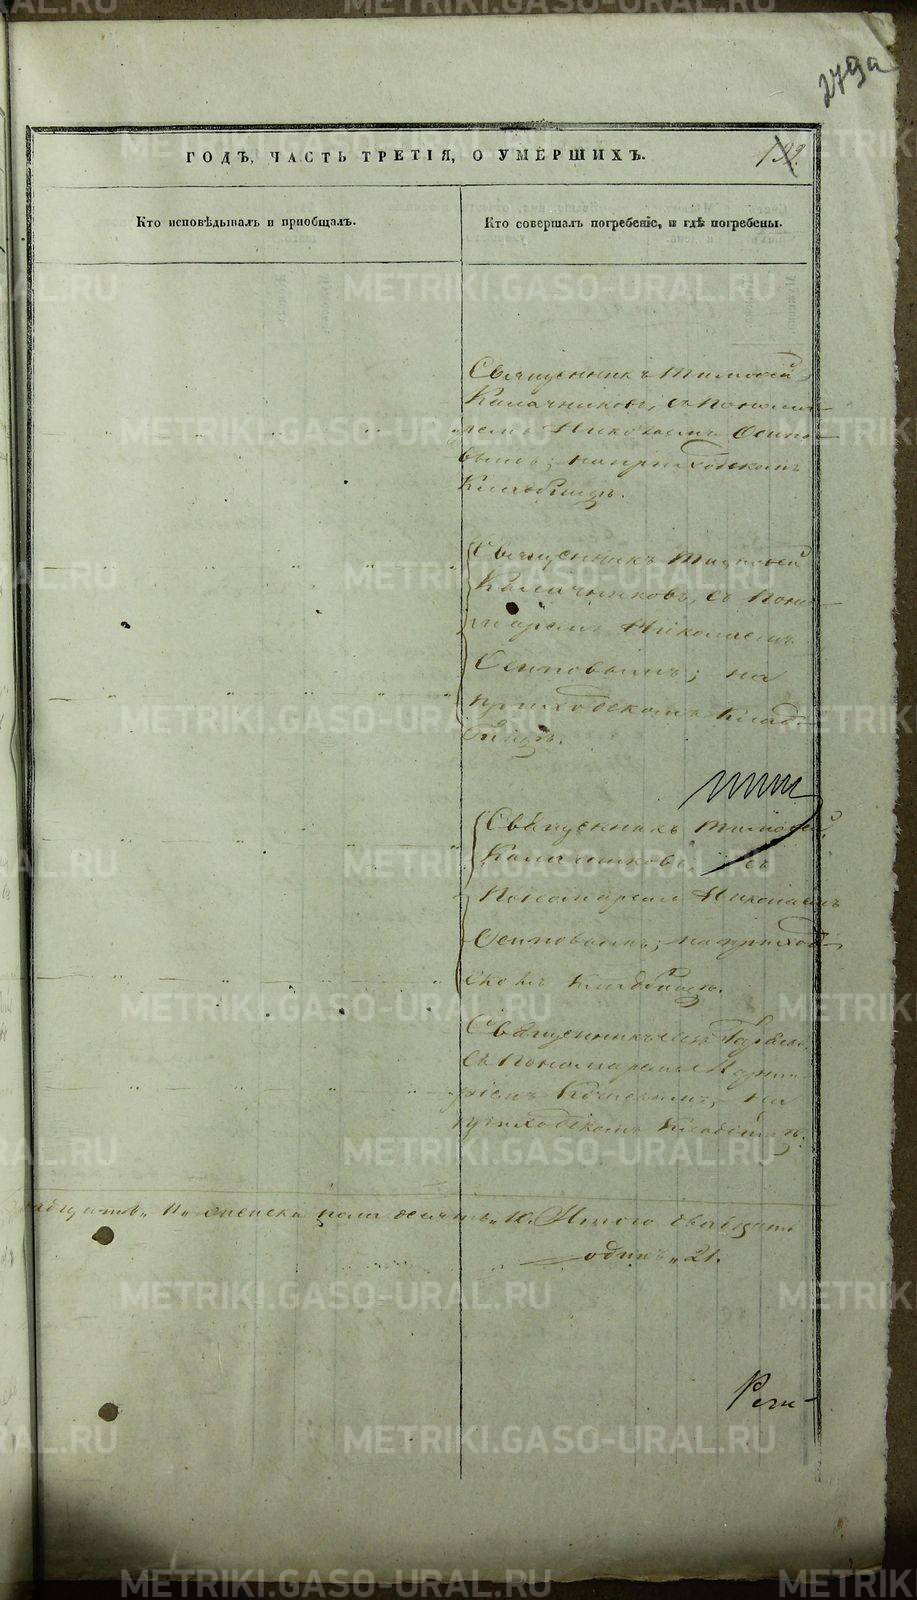 279а
ГОДЪ, ЧАСТЬ ТРЕТІЯ, О УМЕРШИХЪ.
Кто исповѣдывалъ и приобщалъ.
Кто совершалъ погребеніе, и гдѣ погребены.
Священникъ Тимоѳей
Калачниковъ, съ Понома-
ремъ Николаемъ Осипо-
вымъ; на приходскомъ
Кладбищѣ.
Священникъ Тимоѳей
Калачниковъ, съ Поно-
маремъ Николаемъ
Осиповымъ; на
приходскомъ Клад-
бищѣ.
Священникъ Тимоѳей
Калачниковъ, съ
Пономаремъ Николаемъ
Осиповымъ; на приход-
скомъ Кладбищѣ.
Священникъ
съ Пономаремъ
на
приходскомъ Кладбищѣ.
женска пола десять „ 10. Итого двадцать
одинъ „ 21.
METRIKI.GASO-URAL.RU